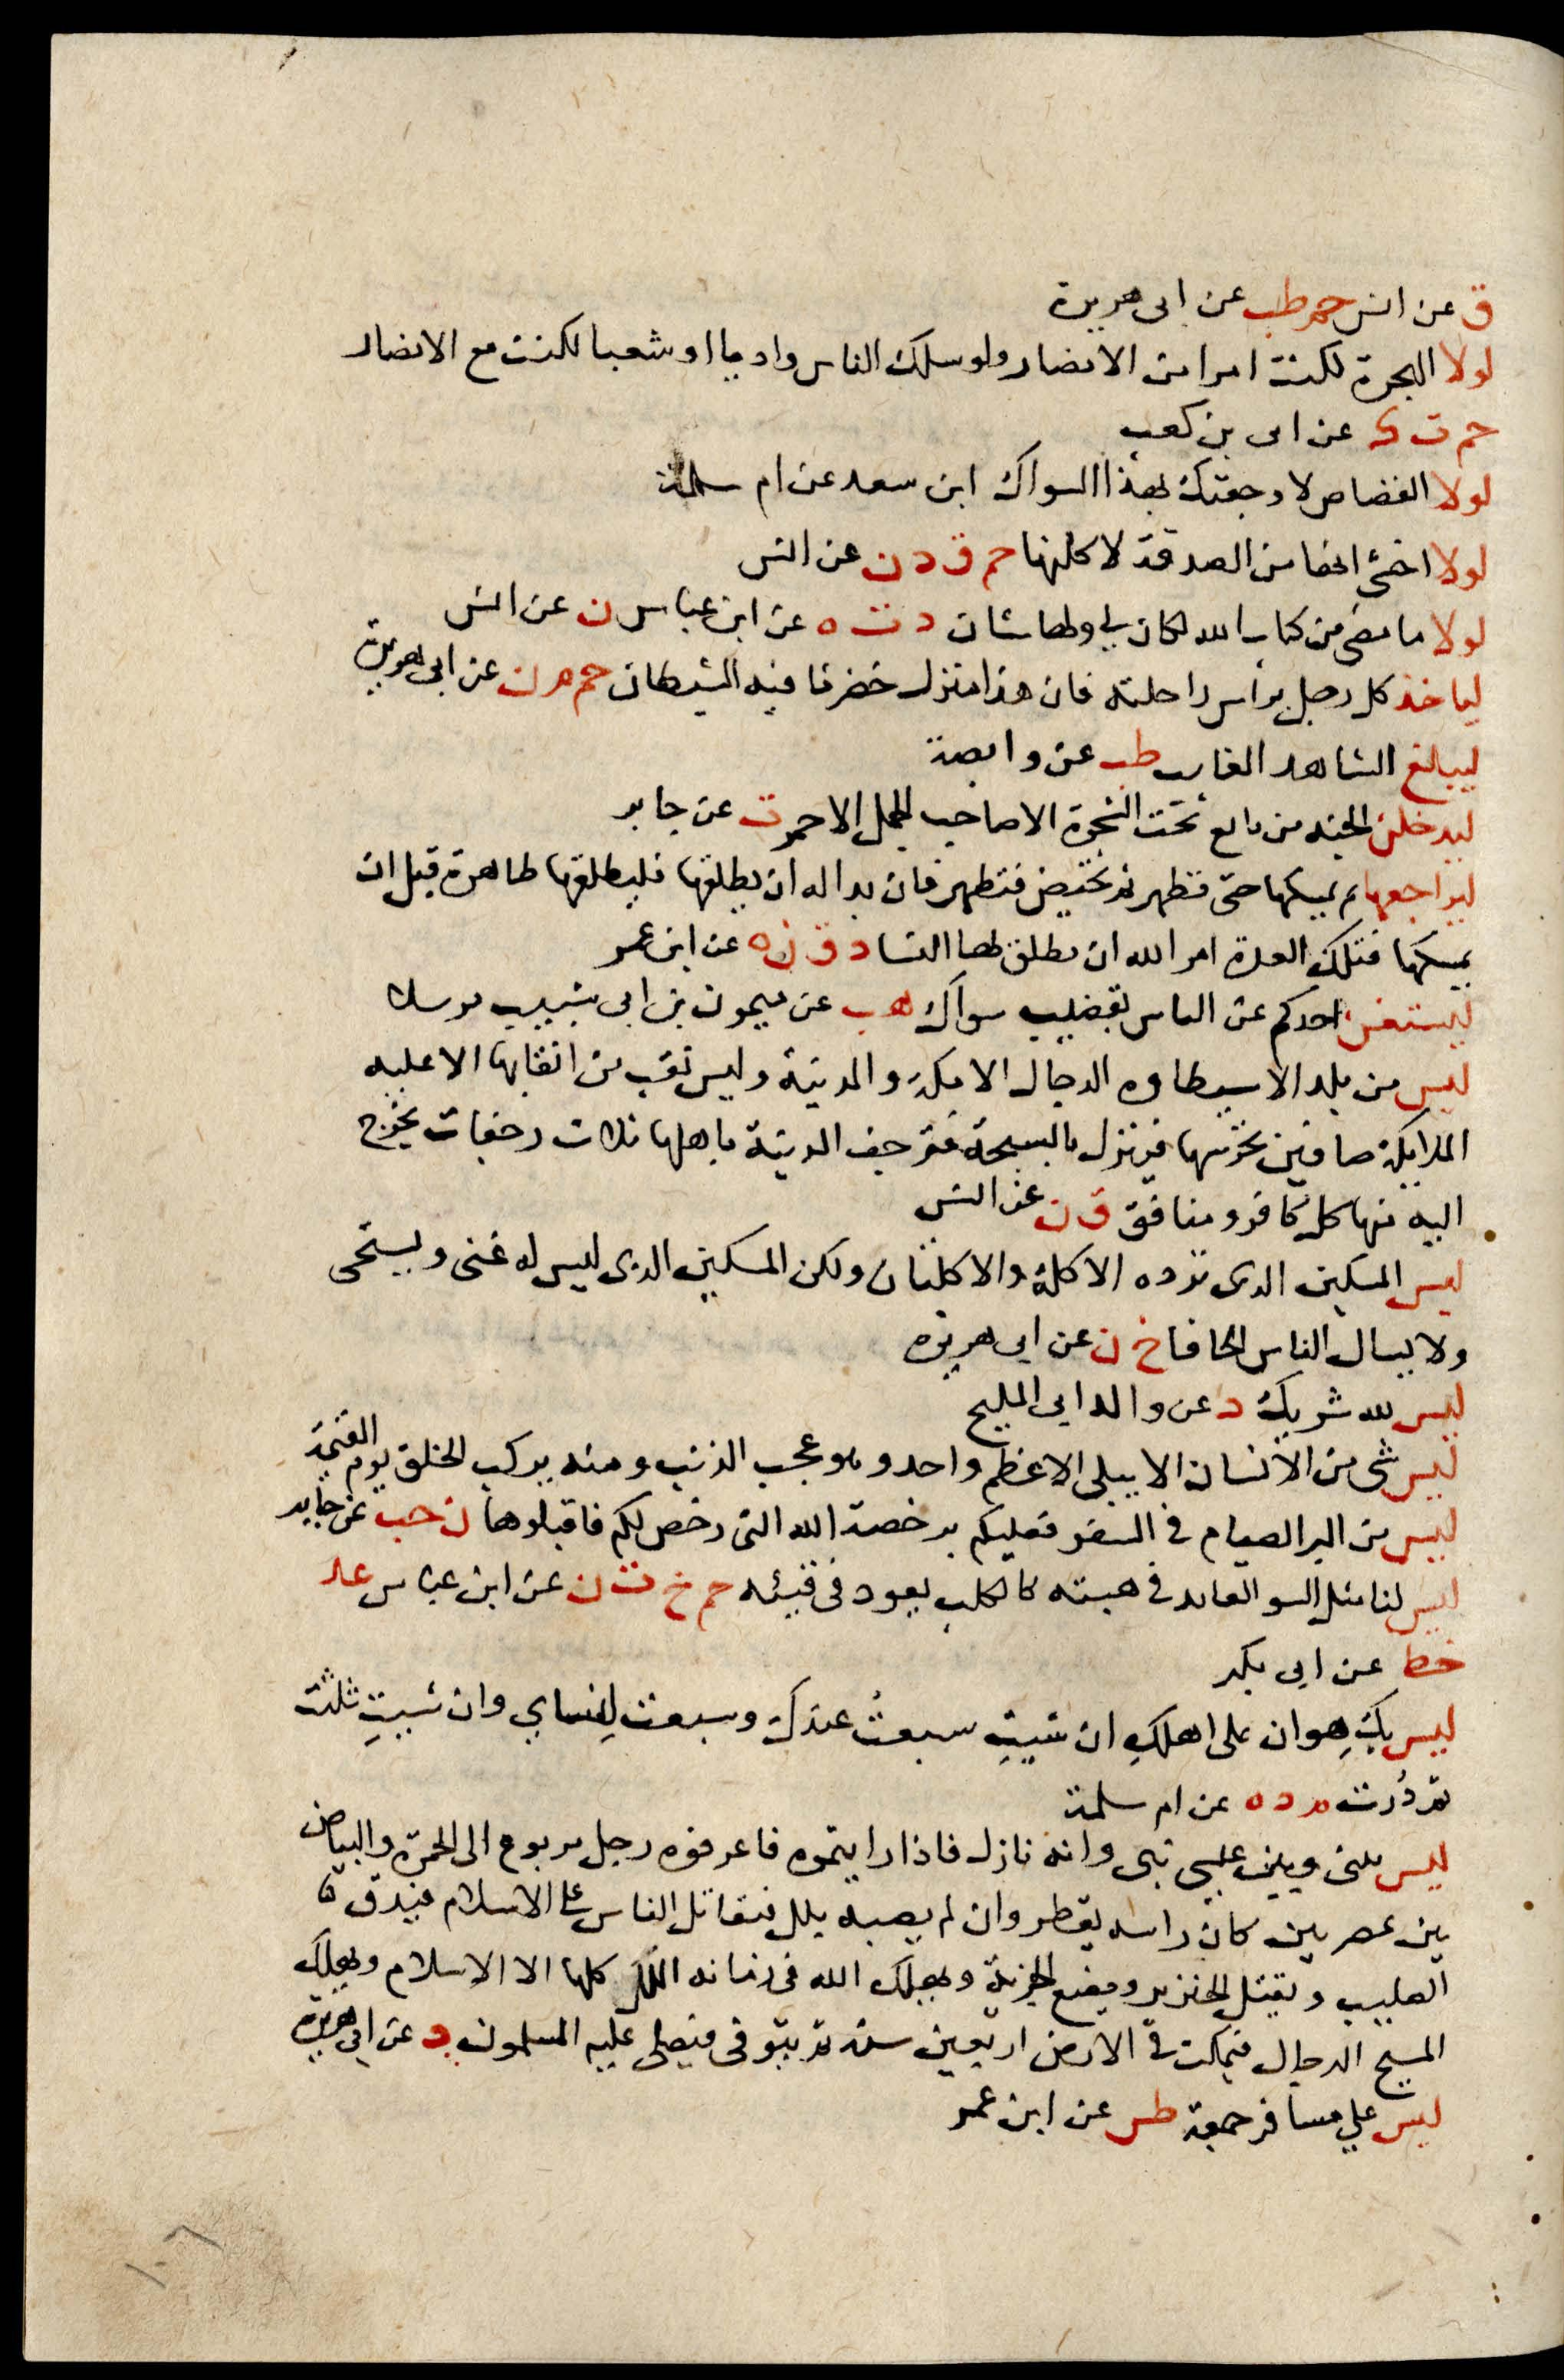 ق عن انس حم طب عن ابى هريرة
لولا الهجرة لكنت امرا من الانصار ولو سلك الناس واديا او شعبا لكنت مع الانصار
حم ت ك عن ابى بن كعب
لولا القصاص لاوجعتك بهذا السواك ابن سعد عن ام سلمة
لولا اخشى انها من الصدقة لاكلتها حم ق د ن عن انس
لولا ما مضى من كتاب الله لكان لي ولها شان د ت ه عن ابن عباس ن عن انس
لياخذ كل رجل براس راحلته فان هذا منزل حضرنا فيه الشيطان حم م ن عن ابى هريرة
ليبلغ الشاهد الغايب طب عن وابصة
ليدخلن الجنه من بايع تحت الشجرة الا صاحب الجمل الاحمر ت عن جابر
ليراجعها ثم يمسكها حتى تطهر ثم تحيض فتطهر فان بدا له ان يطلقها فليطلقها طاهرة قبل ان
يمسكها فتلك العدة امر الله ان تطلق لها النسا د ق ن ه عن ابن عمر
ليستغن احدكم عن الناس بقضيب سواك هب عن ميمون بن ابى شبيب مرسلا
ليس من بلد الا سيطاوه الدجال الا مكة والمدينة وليس نقب من انقابها الا عليه
الملايكة صافين تحرسها فينزل بالسبخة فترجف المدينة باهلها ثلاث رجفات يخرج
اليه منها كل كافر ومنافق ق ن عن انس
ليس المسكين الذى ترده الاكلة والاكلتان ولكن المسكين الذى ليس له غنى ويستحى
ولا يسال الناس الحافا خ ن عن ابى هريره
ليس لله شريك د عن والد ابى المليح
ليس شى من الانسان الا يبلى الا عظم واحد وهو عجب الذنب ومنه يركب الخلق يوم القيمة
ليس من البر الصيام في السفر فعليكم برخصة الله التى رخص لكم فاقبلوها ن حب عن جابر
ليس لنا مثل السو العايد في هبته كالكلب يعود فى قيئه حم خ ت ن عن ابن عباس عد
خط عن ابى بكر
ليس بكِ هوان على اهلكِ ان شيتِ سبعتُ عندكِ وسبعت لنساي وان شيتِ ثلثت
ثم دُرت م د ه عن ام سلمة
ليس بينى وبين عيسى نبى وانه نازل فاذا رايتموه فاعرفوه رجل مربوع الى الحمرة والبياض
بين ممصرين كان راسه يقطر وان لم يصبه بلل فيقاتل الناس على الاسلام فيدق
الصليب ويقتل الخنزير ويضع الجزية ويهلك الله فى زمانه الملل كلها الا الاسلام ويهلك
المسيح الدجال فيمكث في الارض اربعين سنة ثم يتوفى فيصلى عليه المسلمون د عن ابى هريرة
ليس علي مسافر جمعة طس عن ابن عمر